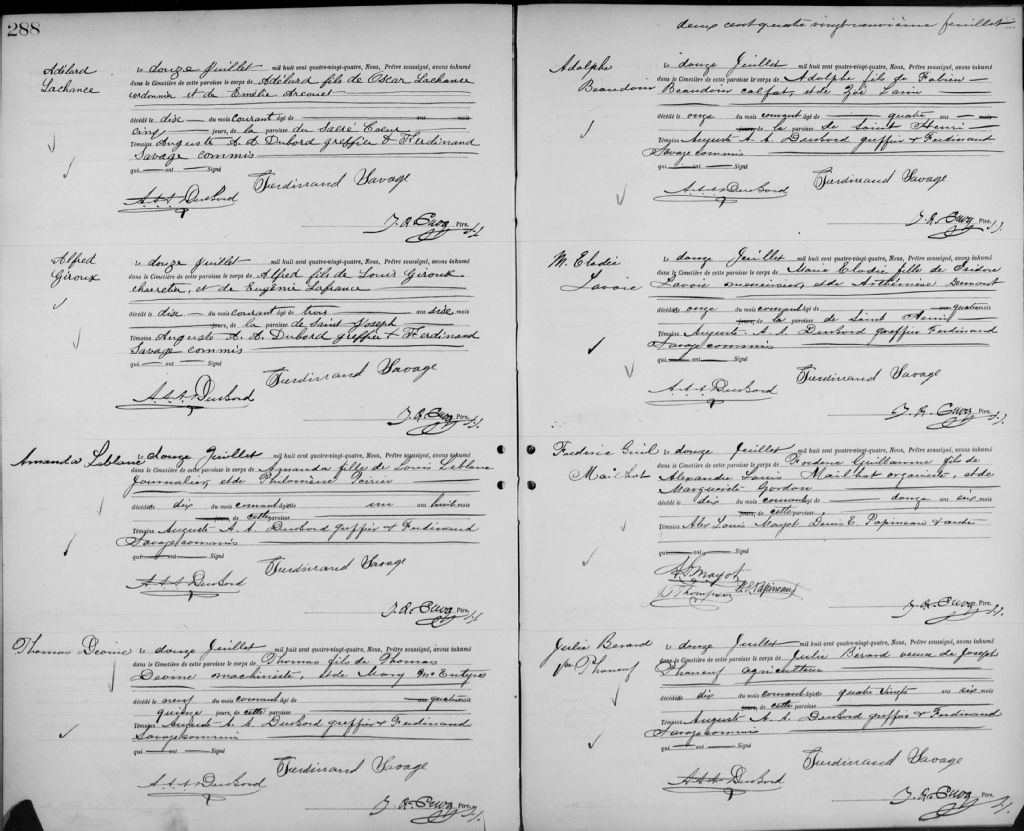 288
Adélard
Lachance
Le douze Juillet mil huit cent quatre-vingt-quatre, Nous, Prêtre soussigné, avons inhumé
dans le Cimetière de cette paroisse le corps de Adélard fils de Oscar Lachance
cordonnier et de Emélie Arcouet
décédé le dix du mois courant âgé de ans mois
cinq jours, de la paroisse du Sacré Coeur
Témoins Auguste A. A. Dubord greffier & Ferdinand
Savage commis
qui ont Signé
Ferdinand Savage
A.A.A. Dubord
Ptre.
Alfred
Giroux
Le douze Juillet mil huit cent quatre-vingt-quatre, Nous, Prêtre soussigné, avons inhumé
dans le Cimetière de cette paroisse le corps de Alfred fils de Louis Giroux
charretier, et de Eugénie Lafrance
décédé le dix du mois courant âgé de trois ans dix mois
jours, de la paroisse de Saint Joseph
Témoins Auguste A. A. Dubord greffier & Ferdinand
Savage commis
qui ont Signé
Ferdinand Savage
A.A.A. Dubord
Ptre.
Amanda Leblanc
Le douze Juillet mil huit cent quatre-vingt-quatre, Nous, Prêtre soussigné, avons inhumé
dans le Cimetière de cette paroisse le corps de Amanda fille de Louis Leblanc
Journalier, et de Philomène Poirier
décédée le dix du mois courant âgée de un an huit mois
jours, de cette paroisse
Témoins Auguste A. A. Dubord greffier & Ferdinand
Savage commis
qui ont Signé
Ferdinand Savage
A.A.A. Dubord
Ptre.
Thomas Devine
Le douze Juillet mil huit cent quatre-vingt-quatre, Nous, Prêtre soussigné, avons inhumé
dans le Cimetière de cette paroisse le corps de Thomas fils de Thomas
Devine machiniste, et de Mary
décédé le neuf du mois courant âgé de quatre mois
quinze jours, de cette paroisse
Témoins Auguste A. A. Dubord greffier & Ferdinand
Savage commis
qui ont Signé
Ferdinand Savage
A.A.A. Dubord
Ptre.
deux cent quatre vingt neuvième feuillet
Adolphe
Beaudoin
Le douze Juillet mil huit cent quatre-vingt-quatre, Nous, Prêtre soussigné, avons inhumé
dans le Cimetière de cette paroisse le corps de Adolphe fils de Fabien
Beaudoin calfat, et de Zoé
décédé le onze du mois courant âgé de quatre ans mois
jours, de la paroisse de Saint Henri
Témoins Auguste A. A. Dubord greffier & Ferdinand
Savage commis
qui ont Signé
Ferdinand Savage
A.A.A. Dubord
Ptre.
M. Elodie
Lavoie
Le douze Juillet mil huit cent quatre-vingt-quatre, Nous, Prêtre soussigné, avons inhumé
dans le Cimetière de cette paroisse le corps de Marie Elodie fille de Isidore
Lavoie menuisier, et de Arthémise Dumont
décédé le onze du mois courant âgé de quatre mois
jours, de la paroisse de Saint Henri
Témoins Auguste A. A. Dubord greffier Ferdinand
Savage commis
qui ont Signé
Ferdinand Savage
A.A.A. Dubord
Ptre.
Frederic Guil
Mailhot
Le douze Juillet mil huit cent quatre-vingt-quatre, Nous, Prêtre soussigné, avons inhumé
dans le Cimetière de cette paroisse le corps de Frederic Guillaume fils de
Alexandre Louis Mailhot organiste, et de
Marguerite Gordon
décédé le dix du mois courant âgé de douze ans six mois
jours, de cette paroisse
Témoins Alex Louis Mayot Denis E. Papineau & autres
qui ont Signé
Mayot
Thompson D. E. Papineau
Ptre.
Julie Berard
Vve Phaneuf
Le douze Juillet mil huit cent quatre-vingt-quatre, Nous, Prêtre soussigné, avons inhumé
dans le Cimetière de cette paroisse le corps de Julie Bérard veuve de Joseph
Phaneuf agriculteur
décédée le dix du mois courant âgée de quatre vingt ans six mois
jours, de cette paroisse
Témoins Auguste A. A. Dubord greffier & Ferdinand
Savage commis
qui ont Signé
Ferdinand Savage
A.A.A. Dubord
Ptre.